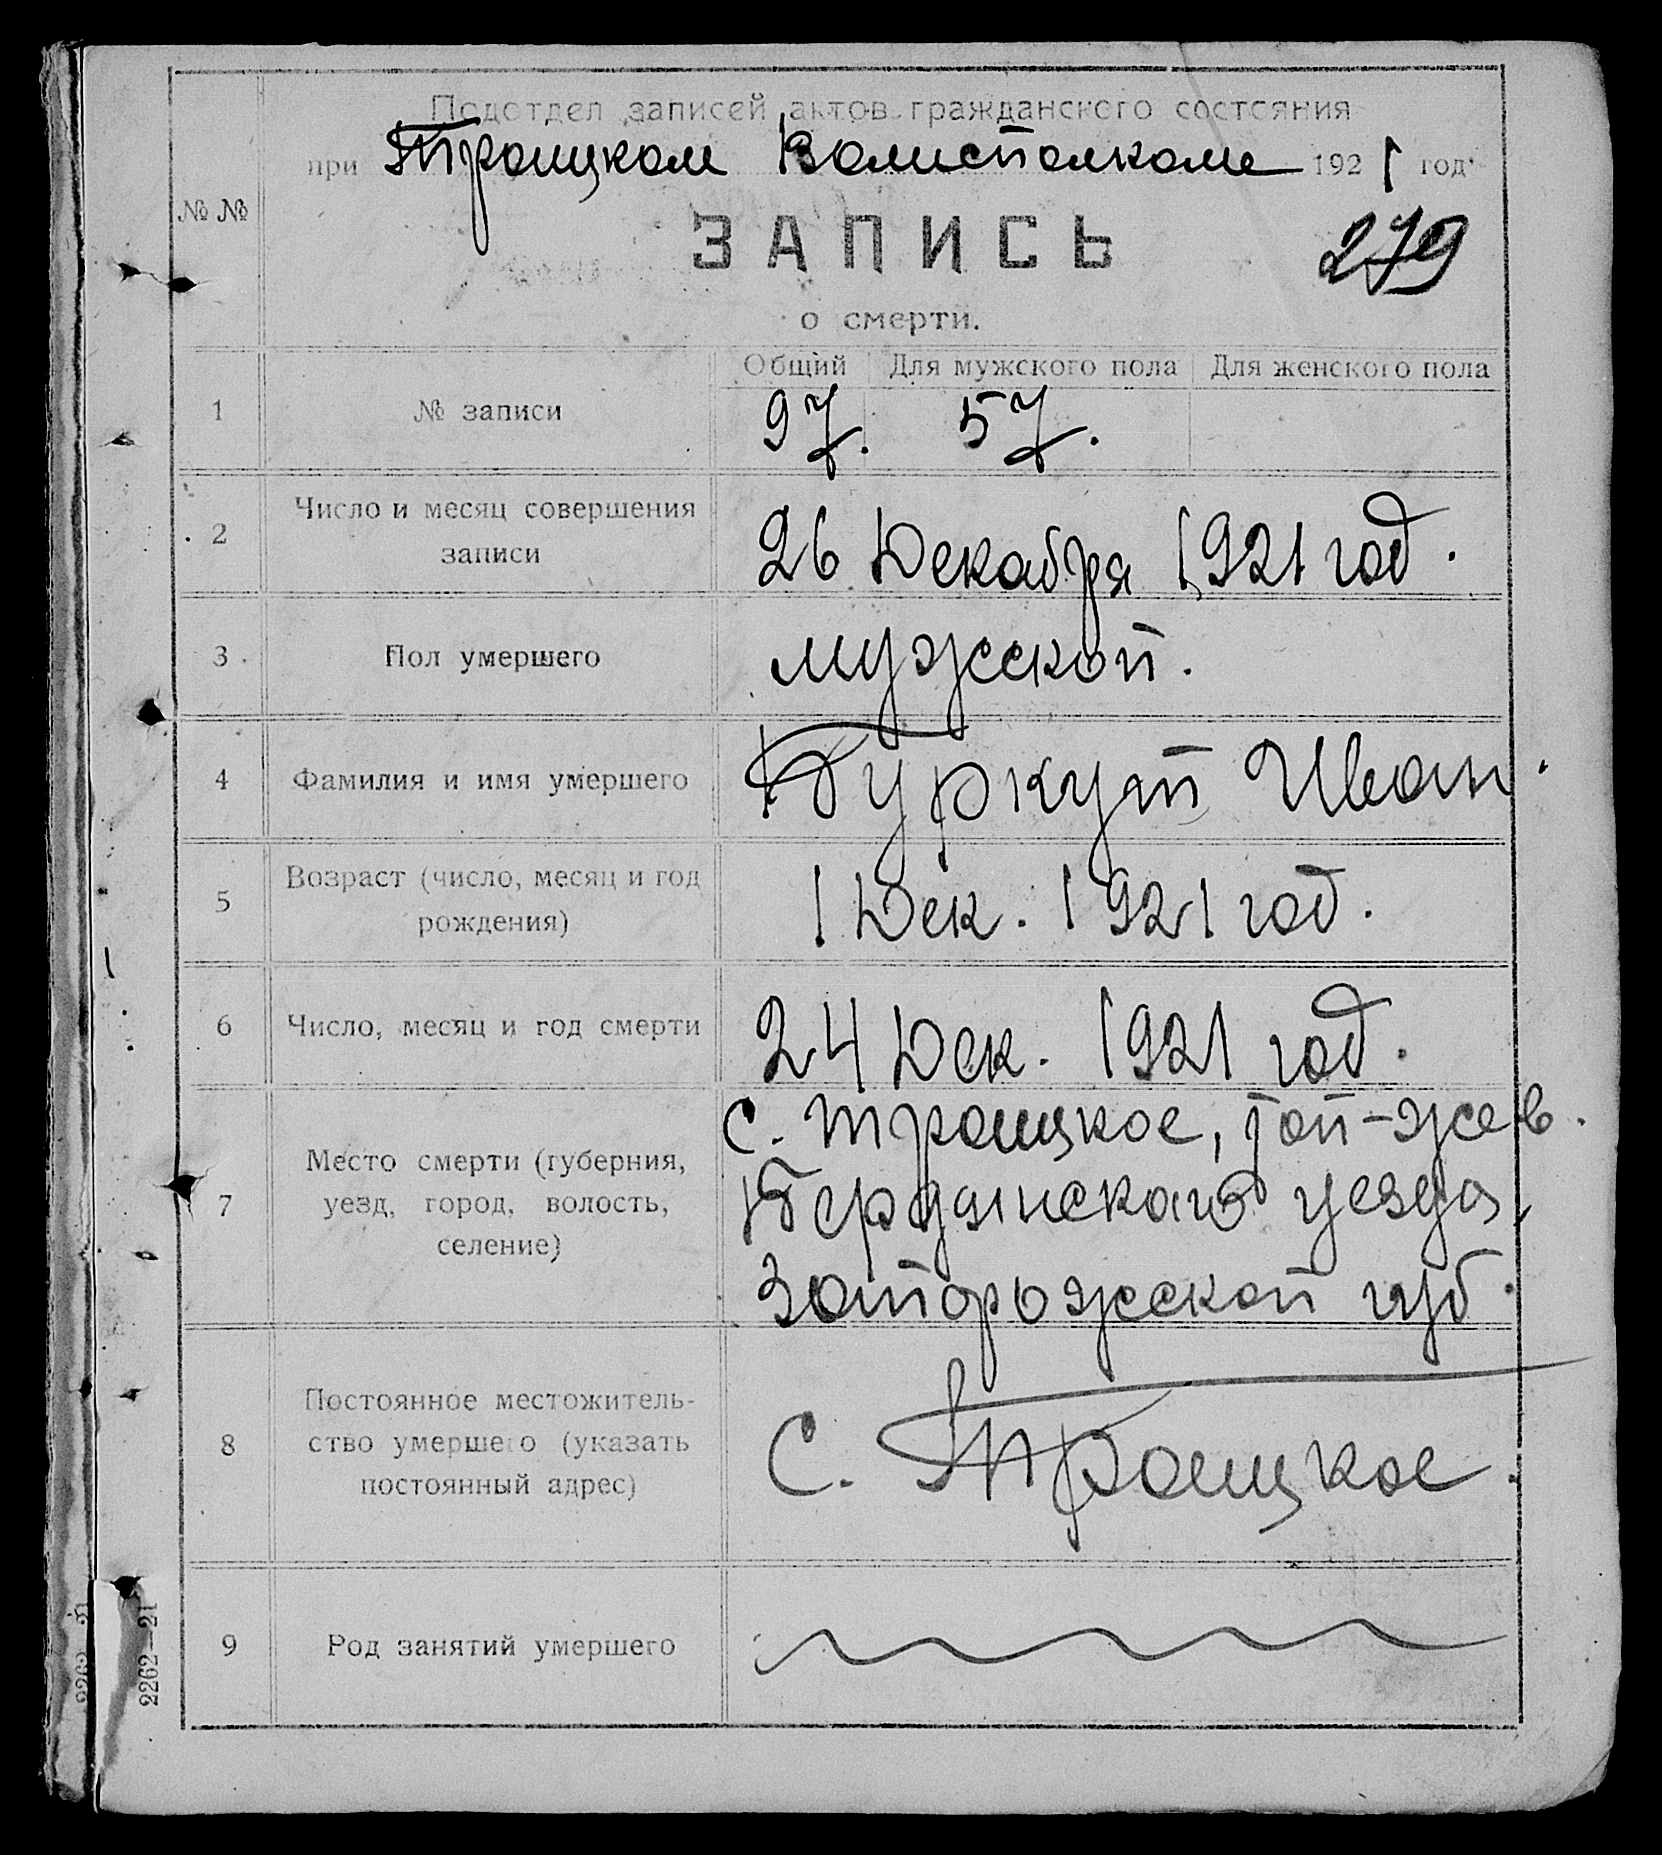 Подотдел записей актов гражданского состояния
при Троицком Волисполкоме 1921 год
№ №
ЗАПИСЬ
279
о смерти.
Общий Для мужского пола Для женского пола
1 № записи 97. 57.
2 Число и месяц совершения
записи
26 Декабря 1921 год.
3 Пол умершего мужской.
4 Фамилия и имя умершего Буркут Иван.
5 Возраст (число, месяц и год
рождения)
1 Дек. 1921 год.
6 Число, месяц и год смерти 24 Дек. 1921 год.
7 Место смерти (губерния,
уезд, город, волость,
селение)
с. Троицкое, той-же в.
Бердянского уезда,
Запорожской губ.
8 Постоянное местожитель-
ство умершего (указать
постоянный адрес)
С. Троицкое.
9 Род занятий умершего
2262—21